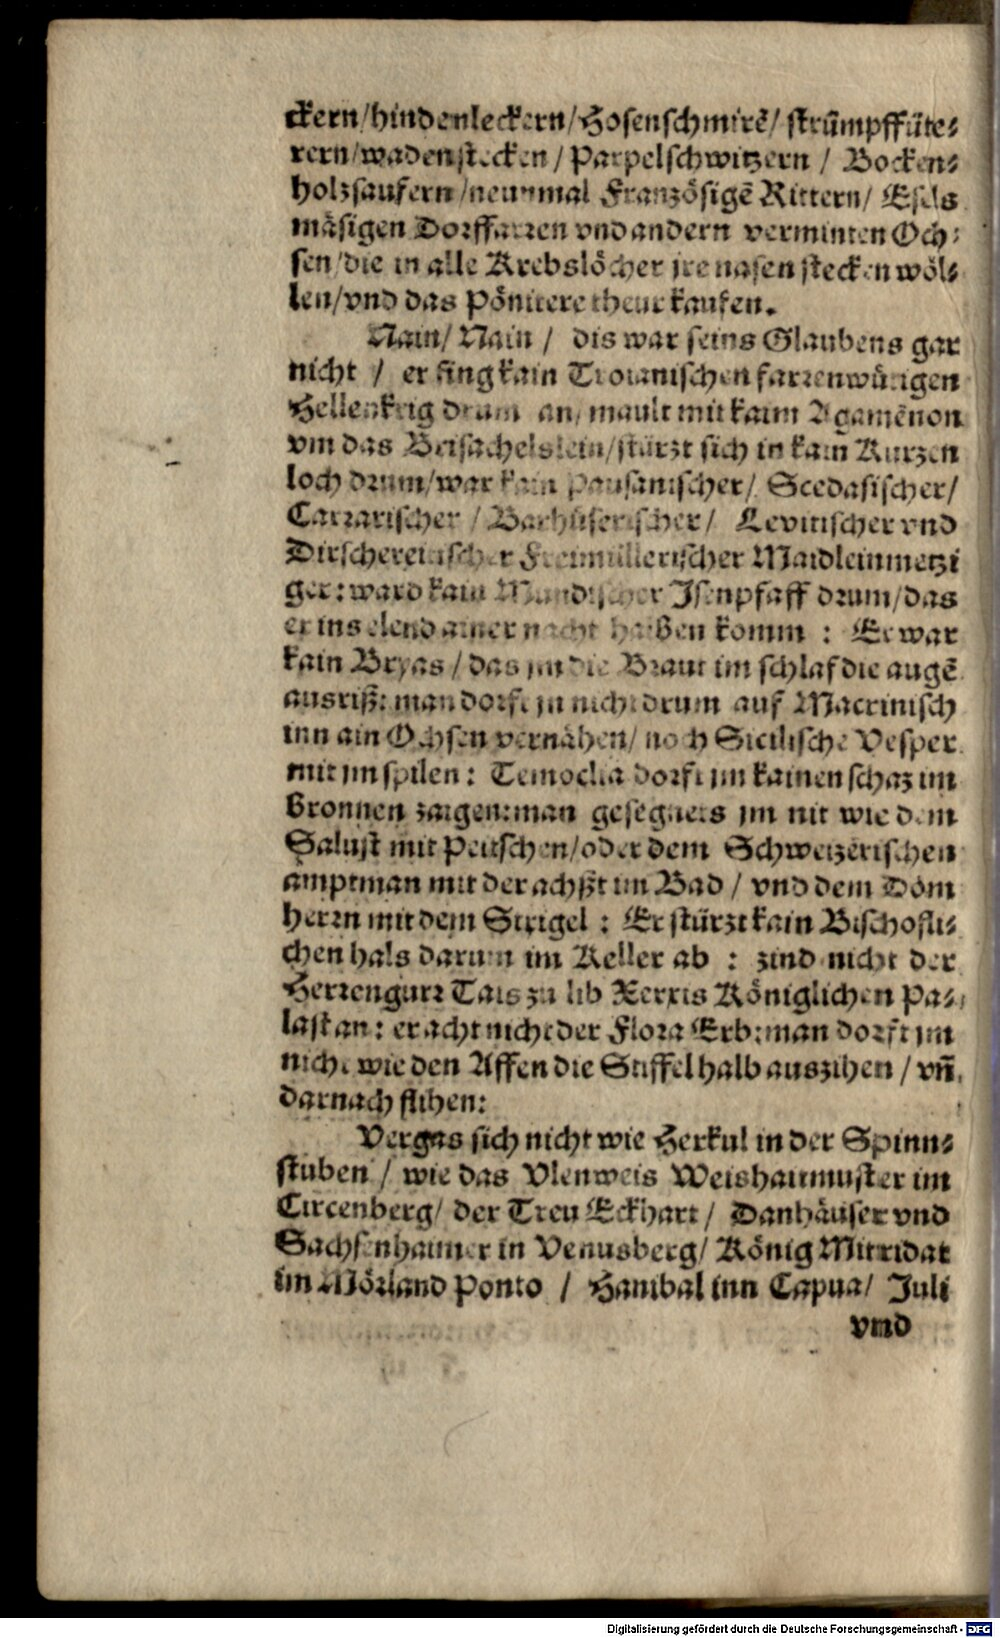 ckern/hindenleckern/Hosenschmirẽ/ strũmpffüte⸗
rern/wadenstecken / Parpelschwitzern / Bocken⸗
holzsaufern/neunmal Französigẽ Rittern/ Esels
mäsigen Dorffarren vnd andern verminten Och⸗
sen/die in alle Krebslöcher jre nasen stecken wöl⸗
len/vnd das Pönitere theur kaufen.
Nain/ Nain / dis war seins Glaubens gar
nicht / er fing kain Troianischen farrenwürigen
Hellenkrig drum an/ mault mit kaim Agamẽnon
vm das Brisachelslein/stürzt sich in kain Kurzen
loch drum/war kain Pausanischer/ Scedasischer/
Carrarischer / Barhüserischer/ Levitischer vnd
Freimüllerischer Maidleinmetzi
ger: ward kain Mundischer Isenpfaff drum/das
er ins elend ainer nacht haisen komm : Er war
kain Bryas / das jm die Braut im schlaf die augẽ
ausriß: man dorft jn nicht drum auf Macrinisch
inn ain Ochsen vernähen/ noch Sicilische Vesper
mit jm spilen: Temoclia dorft jm kainen schaz im
Bronnen zaigen: man gesegnets jm nit wie dem
Salust mit Peitschen/oder dem Schweizerischen
amptman mit der achßt im Bad / vnd dem Dom
herrn mit dem Strigel : Er stürzt kain Bischofli⸗
chen hals darum im Keller ab : zind nicht der
Herrengurr Tais zu lib Xerxis Königlichen Pa⸗
last an: er acht nicht der Flora Erb: man dorft jm
nicht wie den Affen die Stiffel halb auszihen / vñ
darnach flihen:
Vergas sich nicht wie Herkul in der Spinn⸗
stuben / wie das Vlenweis im
Circenberg/ der Treu Eckhart / Danhäuser vnd
Sachsenhaimer in Venusberg/ König Mitridat
im Mörland Ponto / Hanibal inn Capua/ Juli
vnd
Digitalisierung gefördert durch die Deutsche Forschungsgemeinschaft - DFG